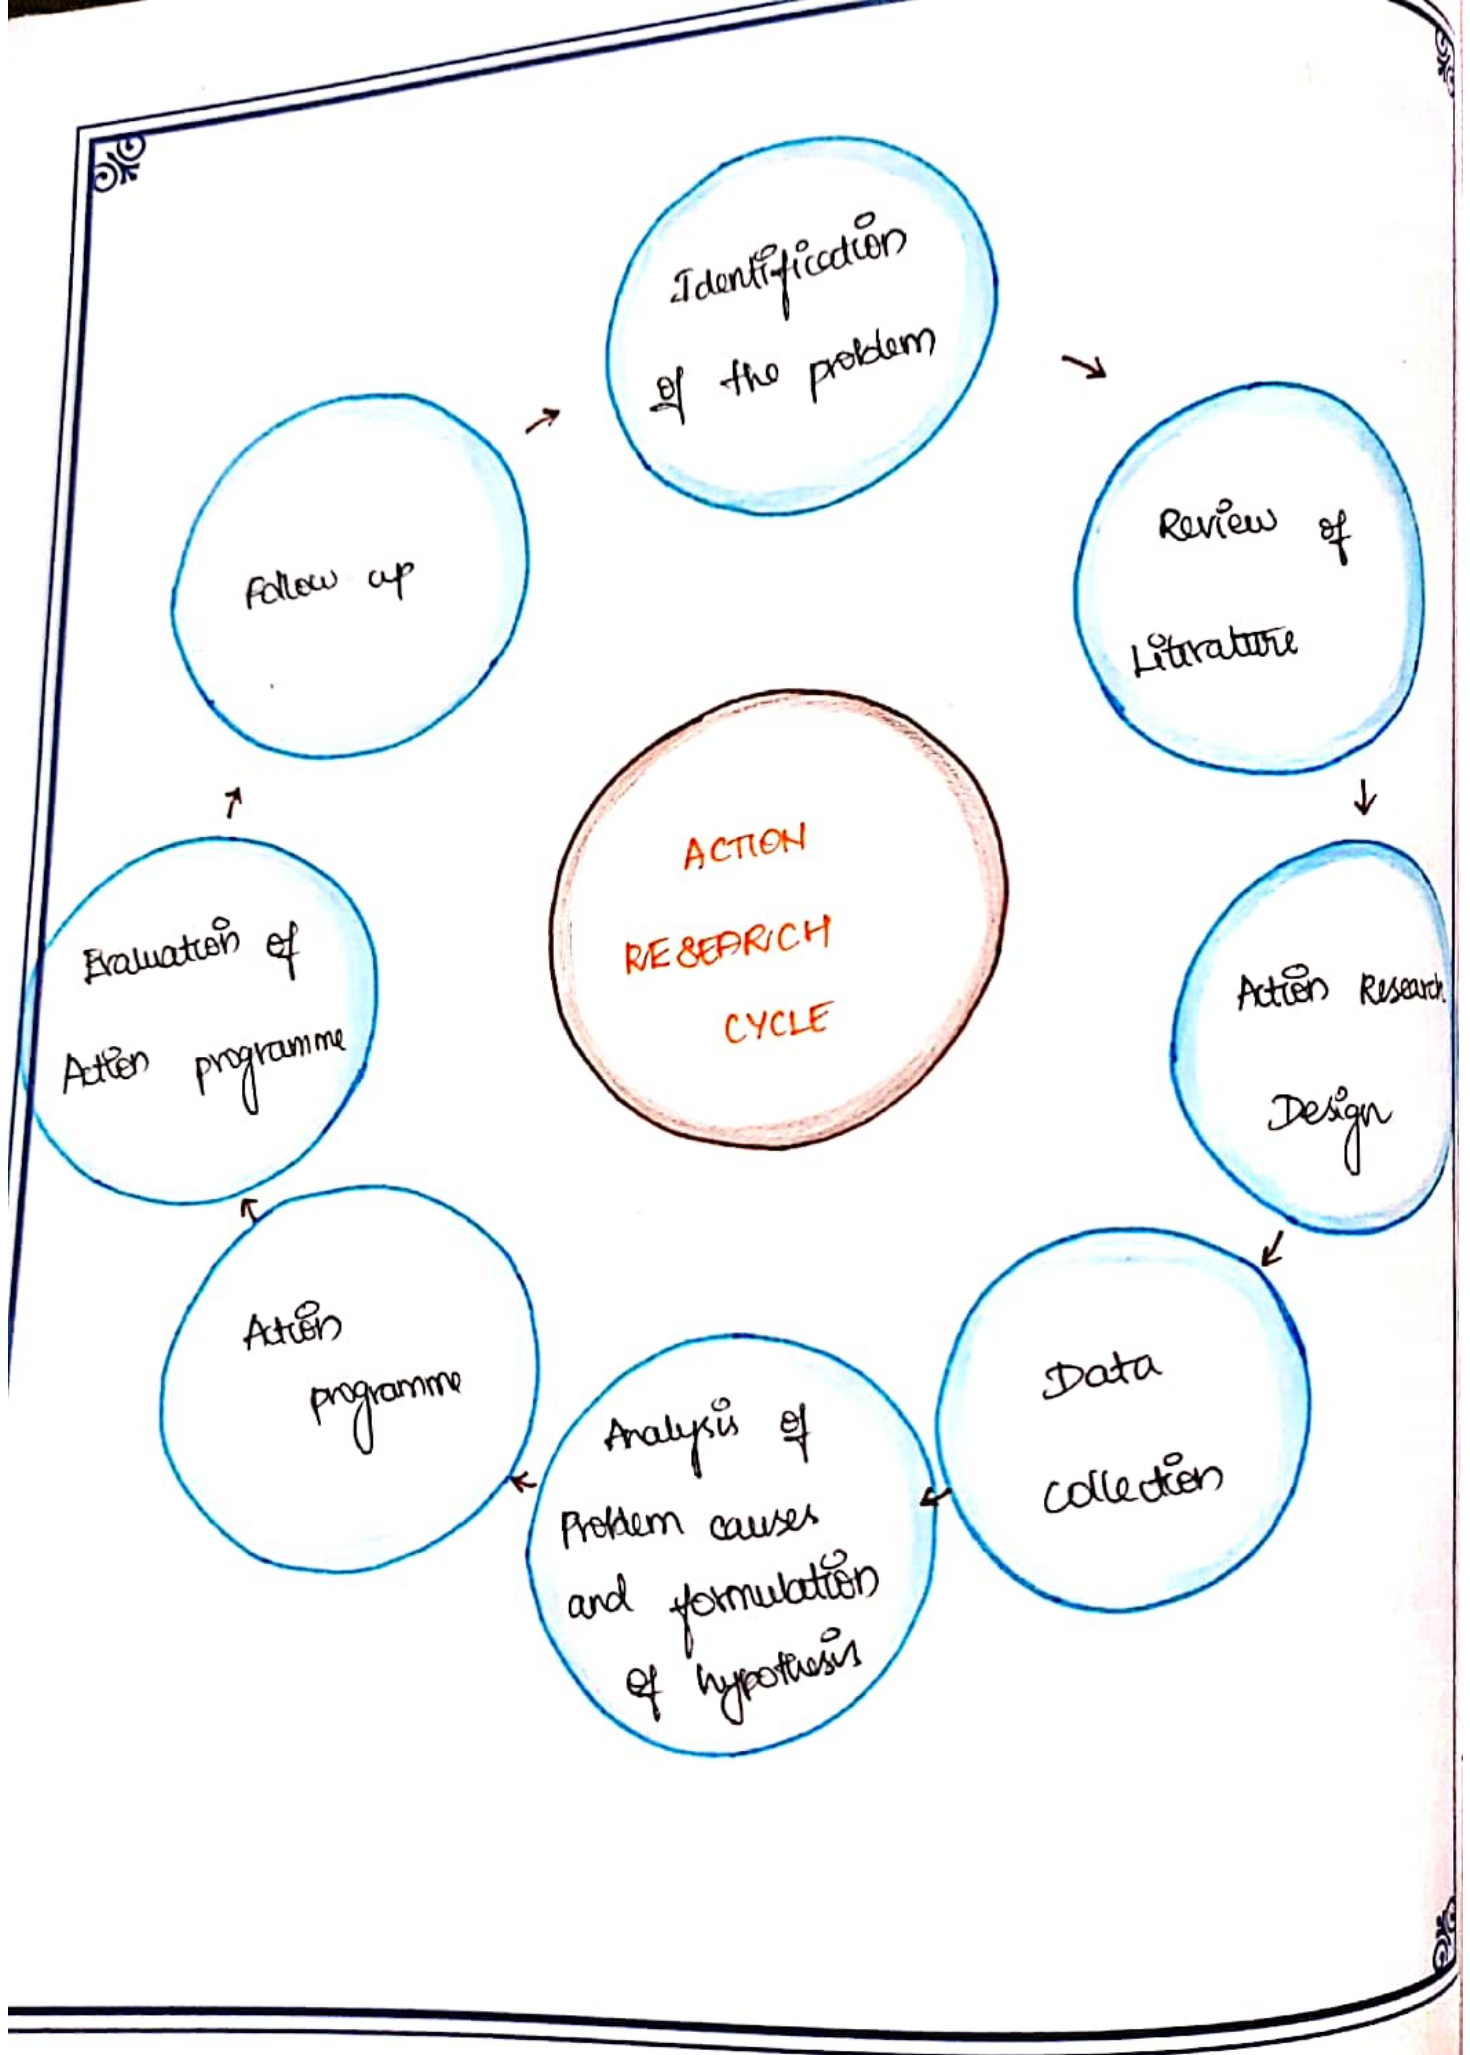 Identification
of the problem
Review of
Literature
Action Research
Design
Data
Collection
Analysis of
Problem causes
and formulation
of hypothesis
Action
programme
Evaluation of
Action programme
Follow up
ACTION
RESEARCH
CYCLE